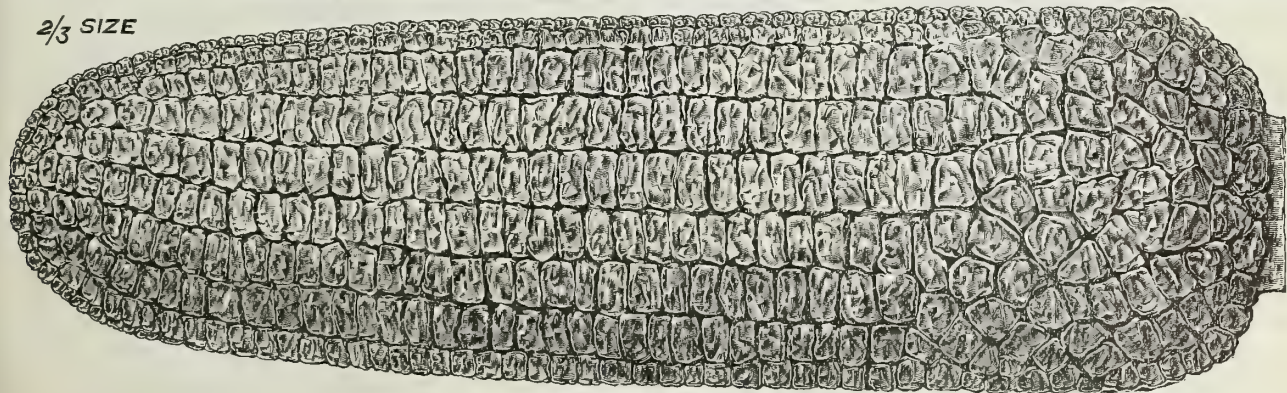 2/3 SIZE